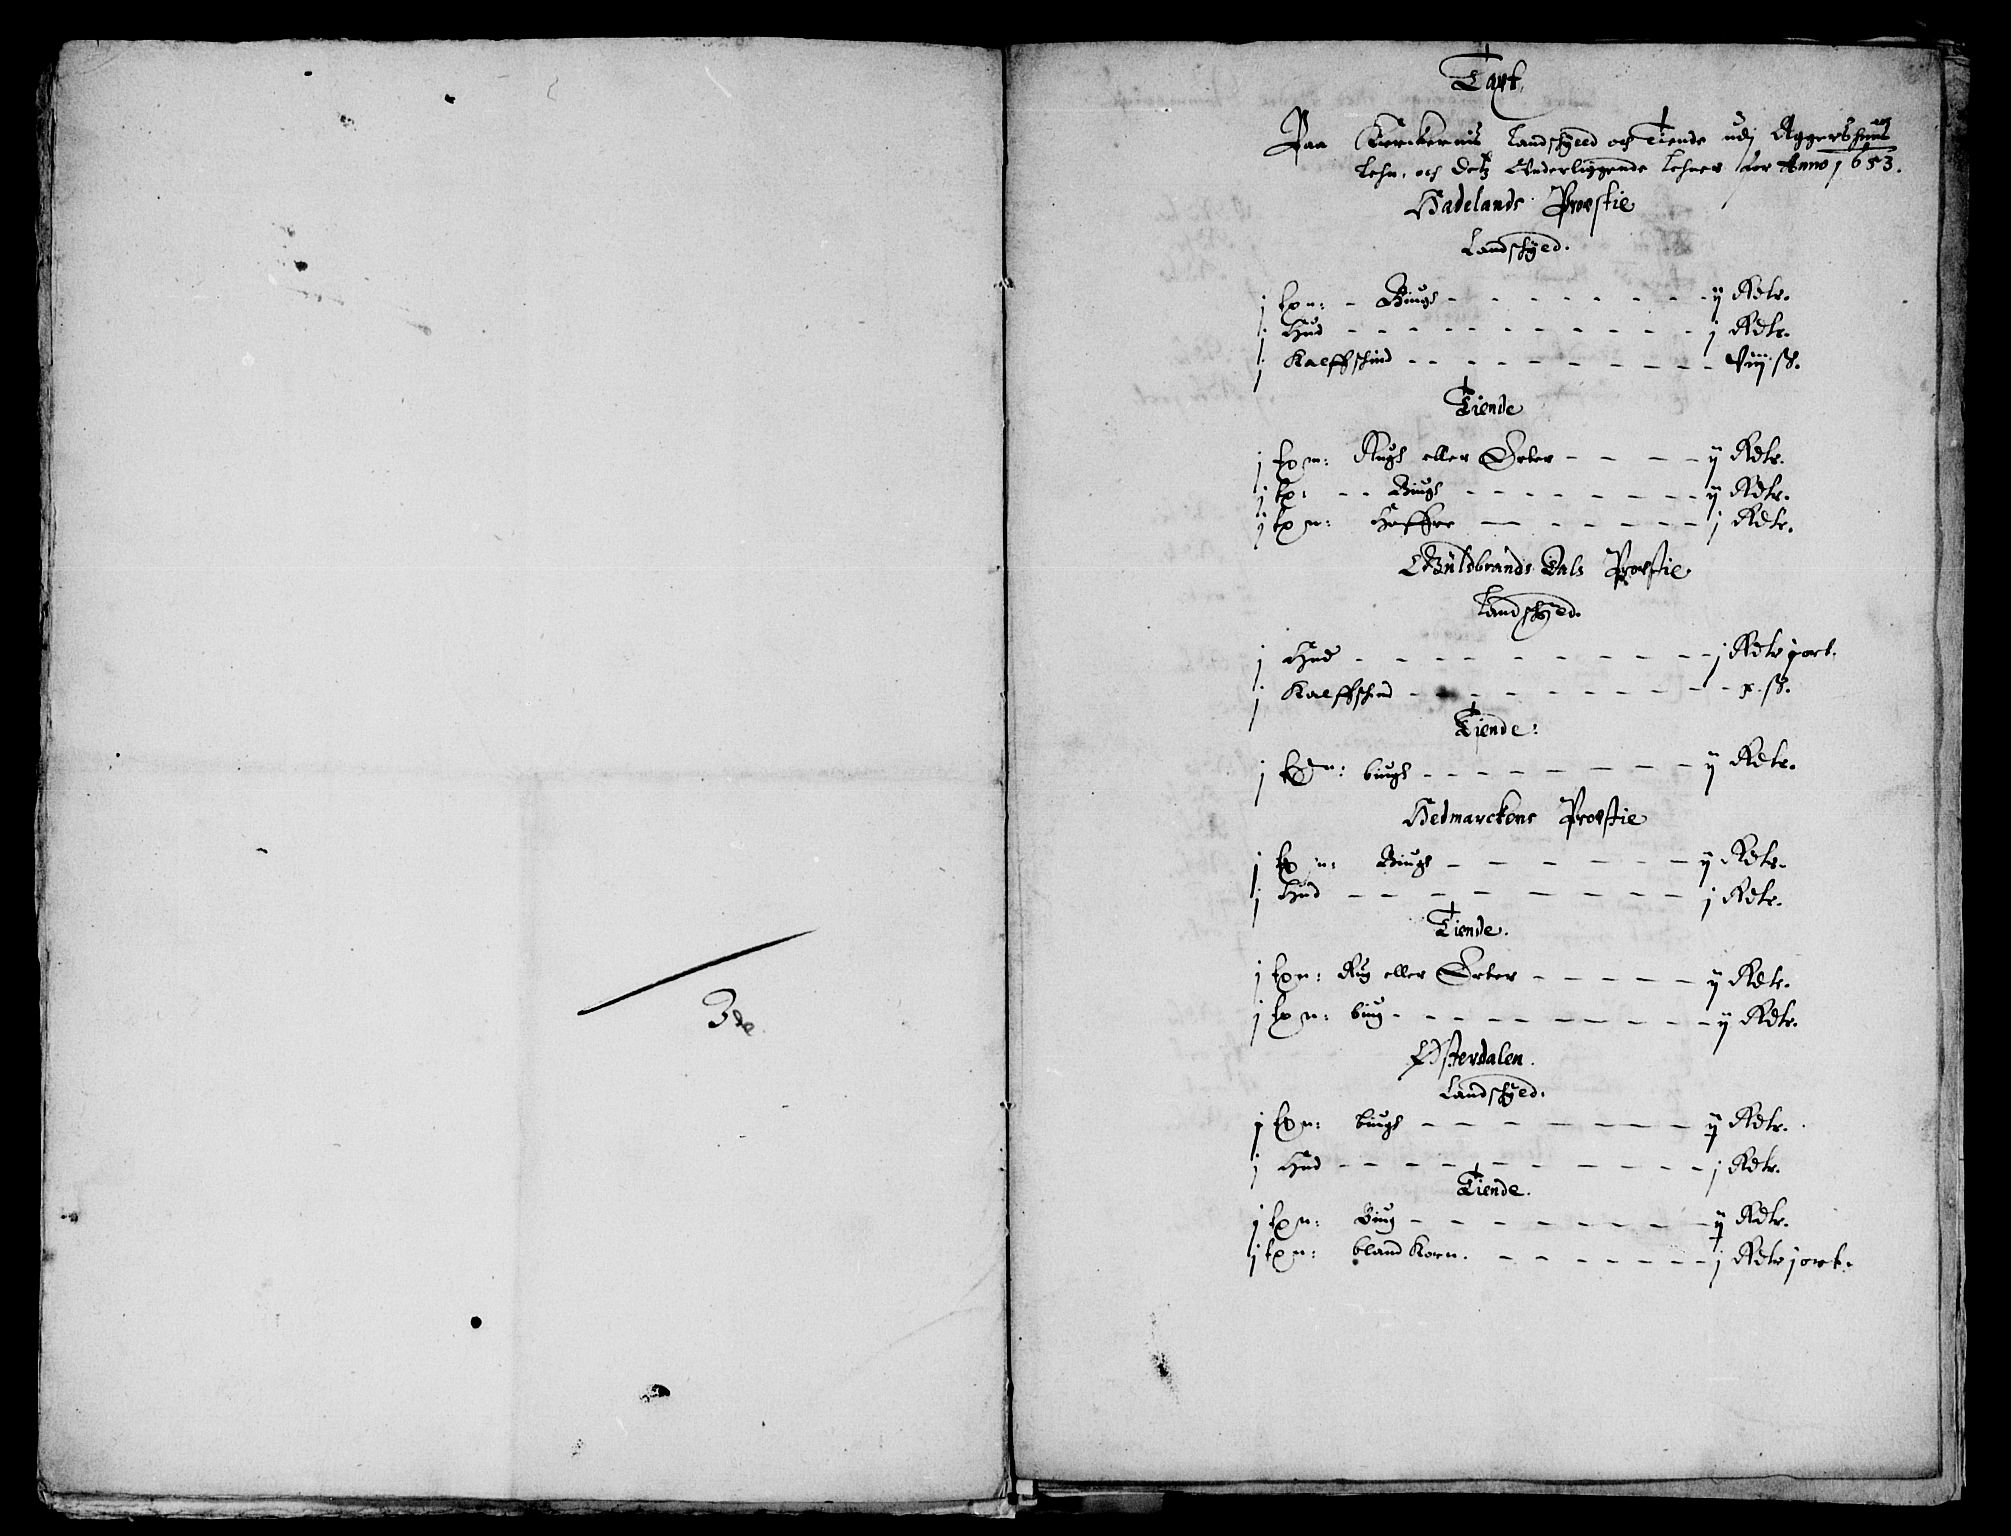 Taxt,
Paa Kierckernis Landschyld och Tiende udj Aggershuus
Lehn, och detz Underliggende Lehner for Anno 1653.
Hadelands Prowstie
Landschyld.
j tp n: - Biugh - - - - - - - - ij Rdlr.
j Hud - - - - - - - - - - j Rdlr.
j Kalffschind - - - - - - - - - Viij ß.
Tiende
j tp n: Rugh eller Erter - - - - ij Rdlr.
j tp: - - Biugh - - - - - - - - ij Rdlr.
j tp n: Haffre - - - - - - j Rdlr.
Guldbrands Dals Prowstie
Landschyld.
j Hud - - - - - - - - - - j Rdlr j ort.
j Kalffschind - - - - - - - - x ß.
Tiende:
j tp n: biugh - - - - - - - - ij Rdlr.
Hedmarckens Prowstie
j tp n: Biugh - - - - - - - ij Rdlr.
j Hud - - - - - - - - - j Rdlr.
Tiende.
j tp n: Rug eller Erter - - - - - ij Rdlr.
j tp n: biug - - - - - - - - - ij Rdlr.
Østerdalen.
Landschyld.
j tp n: biugh - - - - - - - ij Rdlr.
j Hud - - - - - - - - - - - j Rdlr.
Tiende.
j tp n: Biug - - - - - - - - ij Rdlr.
j tp n: bland Korn. - - - - - - j Rdlr j ort.